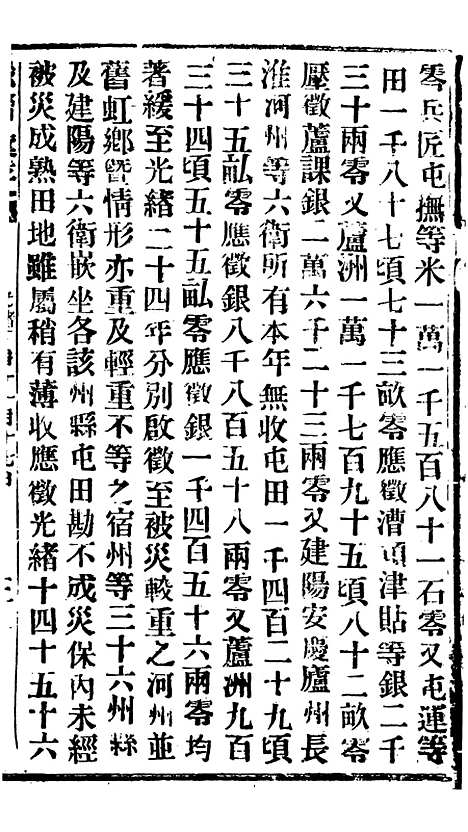 零兵匠屯撫等米一萬一千五百八十一石零又屯運等
田一千八十七頃七十三畝零應徵漕項津貼等銀二千
三十兩零又蘆洲一萬一千七百九十五頃八十二畝零
壓徵蘆課銀二萬六千二十三兩零又建陽安慶廬州長
淮河州等六衛所有本年無收屯田一千四百二十九頃
三十五畆零應徵銀八千八百五十八兩零又蘆洲九百
三十四頃五十五畆零應徵銀一千四百五十六兩零均
著緩至光緒二十四年分別啟徵至被災較重之河州並
舊虹鄉暨情形亦重及輕重不等之宿州等三十六州縣
及建陽等六衛嵌坐各該州縣屯田勘不成災保內未經
被災成熟田地雖屬稍有薄收應徵光緒十四十五十六